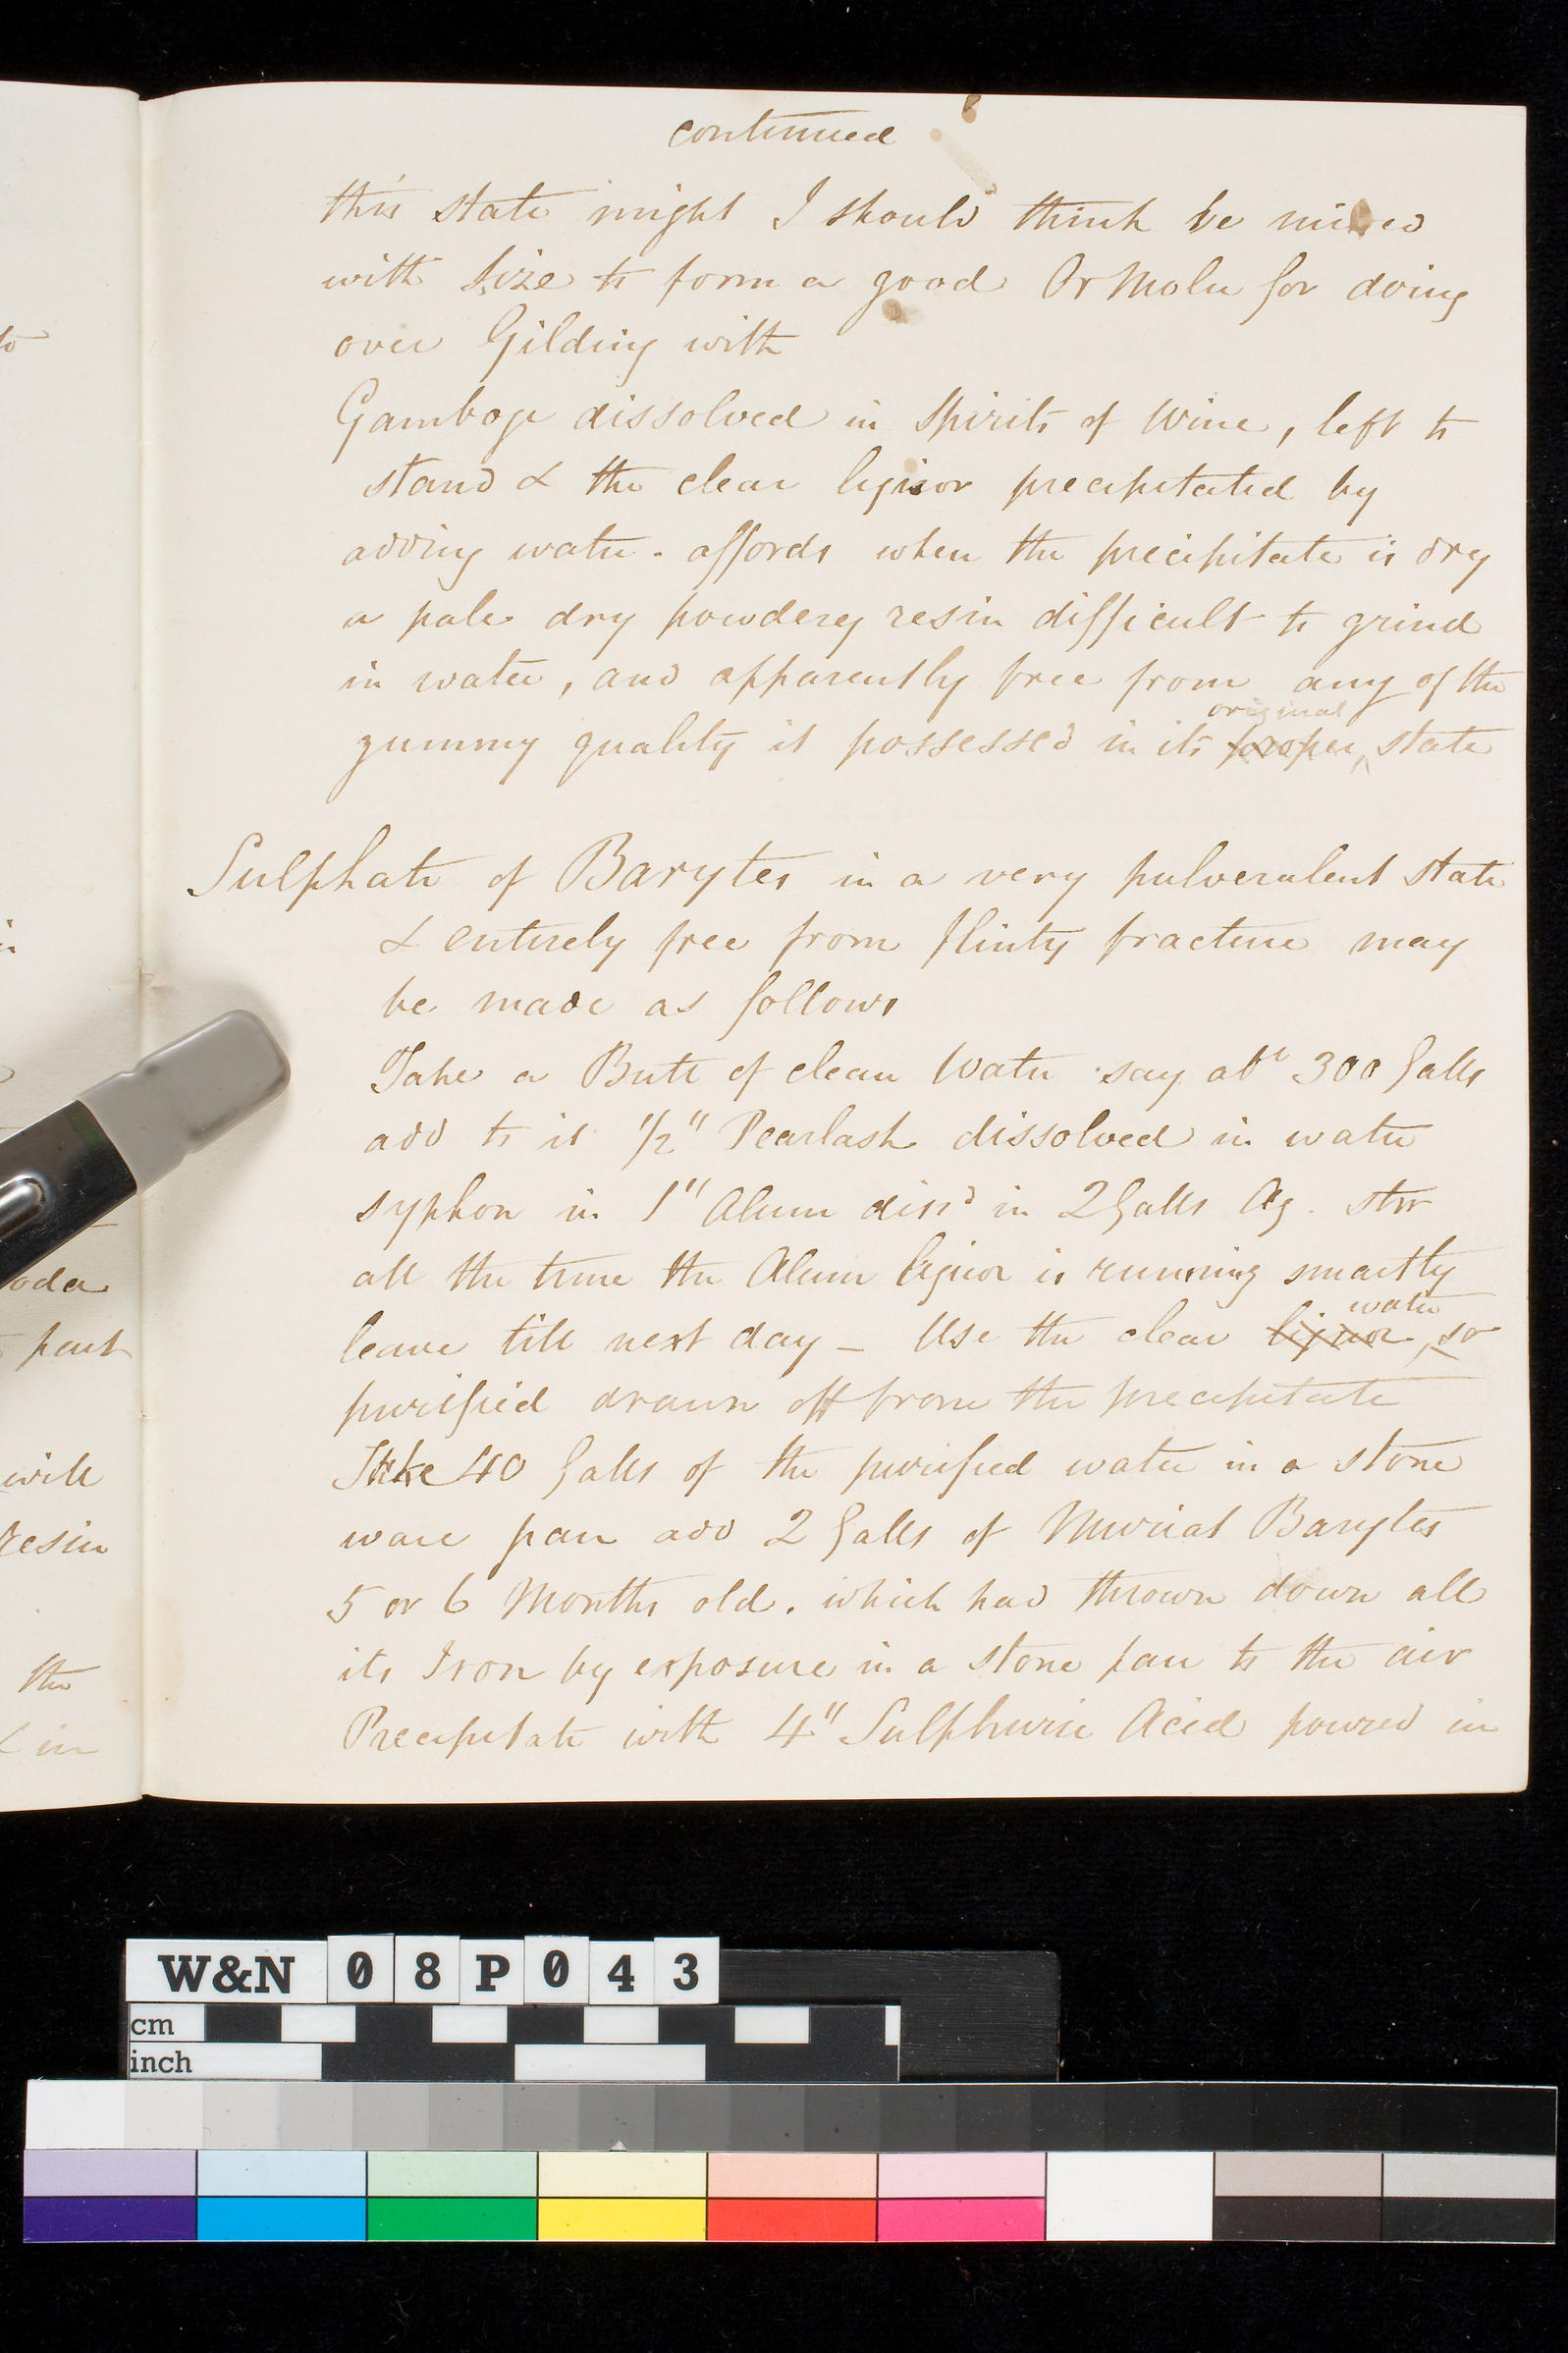 continued
this state might I should think be mixed
with Size to form a good Or Molu for doing
over Gilding with
Gamboge dissolved in Spirits of Wine, left to
stand & the clear liquor precipitated by
adding water. affords when the precipitate is dry
a pale dry powdery resin difficult to grind
in water, and apparently free from any of the
original
gummy quality it possessed in its proper state
Sulphate of Barytes in a very pulverulent state
& entirely free from flinty fracture may
be made as follows
Take a Butt of clean Water say abt 300 Galls
add to it 1/2" Pearlash dissolved in water
syphon in 1" Alum dissd in 2 Galls Aq. stir
all the time the Alum liquor is running smartly
water
leave till next day – Use the clear liquor, so
purified drawn off from the precipitate
Take 40 Galls of the purified water in a stone
ware pan add 2 Galls of Muriat Barytes
5 or 6 Months old. which had thrown down all
its Iron by exposure in a stone pan to the air
Precipitate with 4" Sulphuric Acid poured in
to
in
oda
part
will
resin
the
& in
W&N 08P043
cm
inch